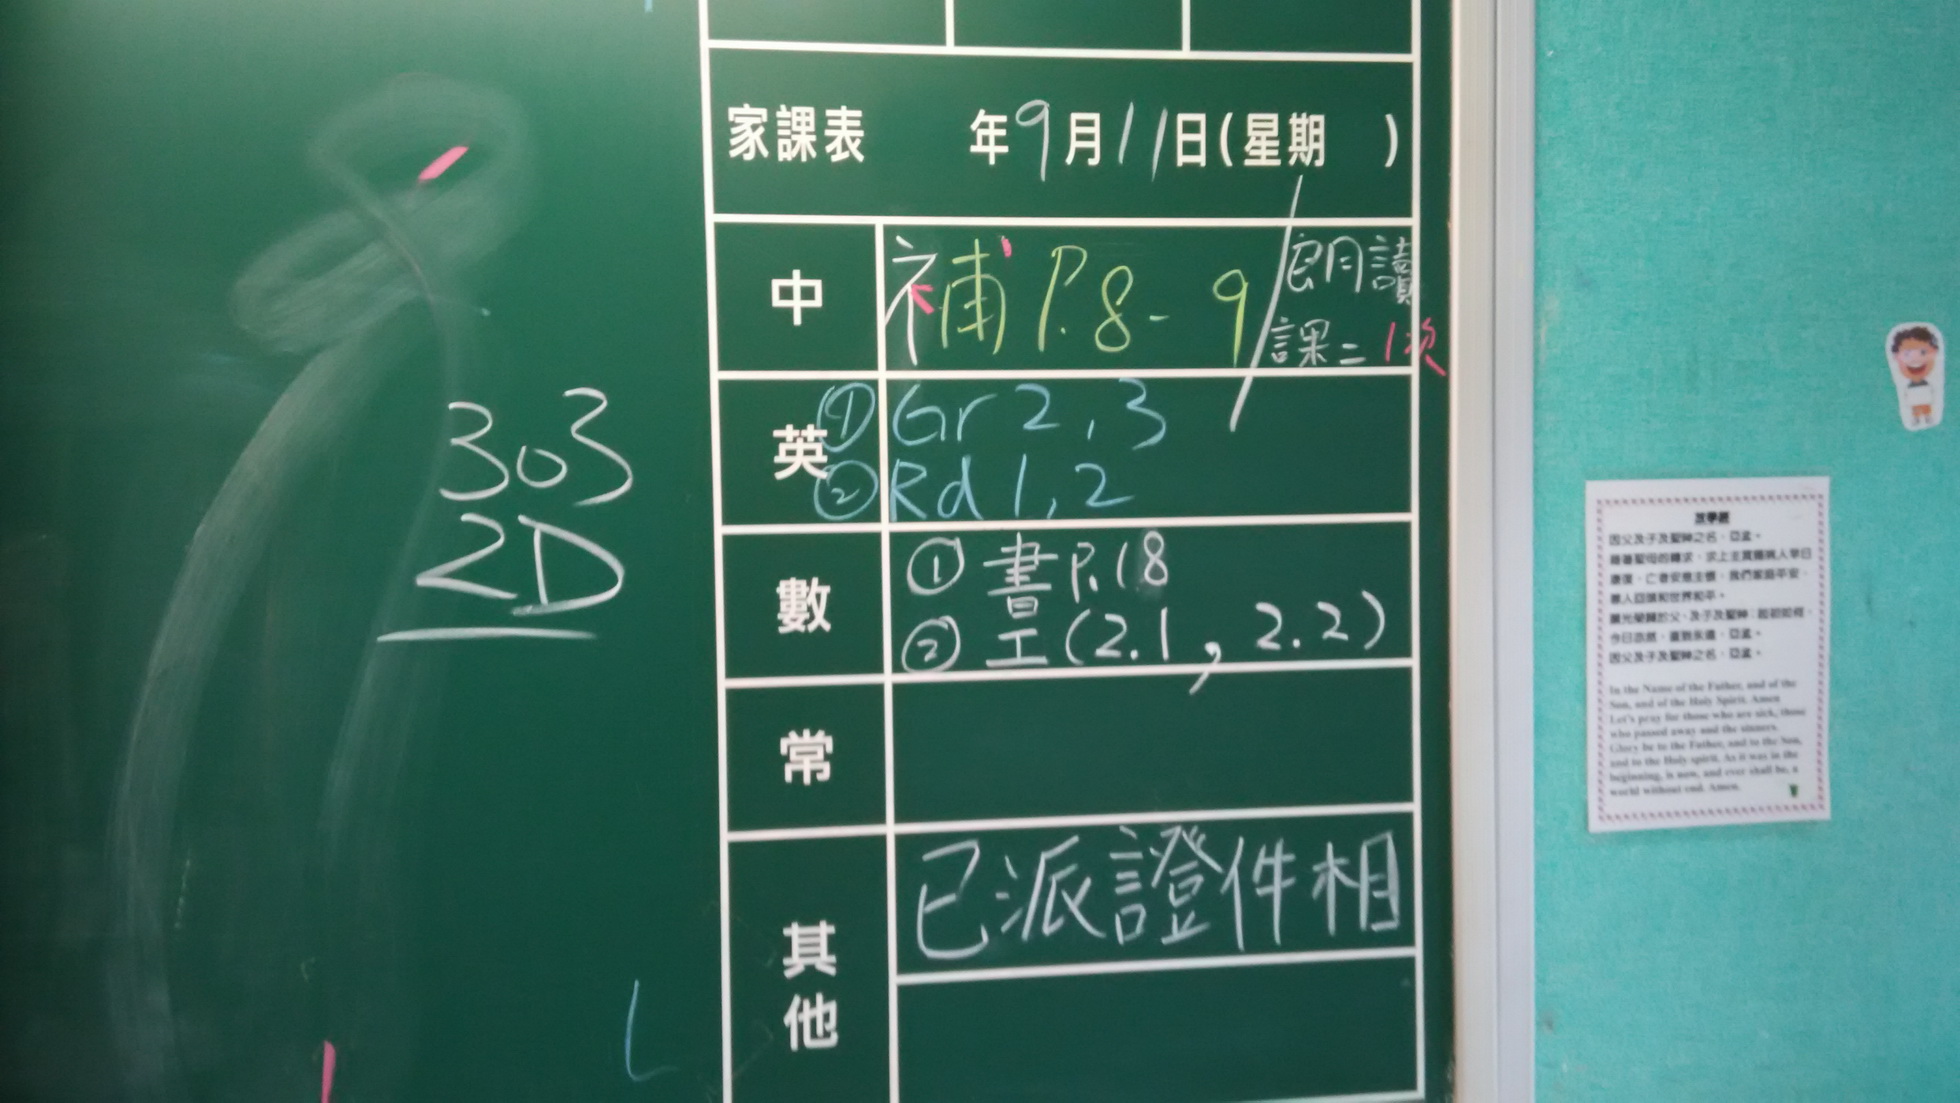 303
2D
家課表 年9月11日(星期 )
中 補 P.8-9 / 朗讀
課二 1次
英 ① Gr 2,3
② Rd 1,2
數 ① 書 P.18
② 工(2.1, 2.2)
常
其他 已派證件相
放學經
因父及子及聖神之名.亞孟。
因父及子及聖神之名.亞孟。
In the Name of the Father, and of the
Son, and of the Holy Spirit. Amen
Let's pray for those who are sick, those
who passed away and the sinners.
Glory be to the Father, and to the Son,
and to the Holy spirit. As it was in the
beginning, is now, and ever shall be, a
world without end. Amen.